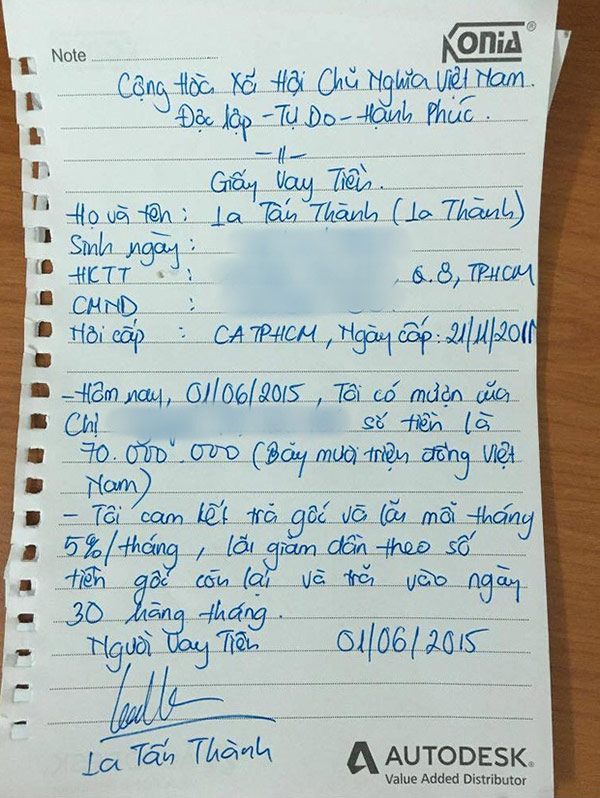 Note
KONIA®
Cộng Hòa Xã Hội Chủ Nghĩa Việt Nam.
Độc lập - Tự Do - Hạnh Phúc.
-"-
Giấy Vay Tiền.
Họ và tên : La Tấn Thành (La Thành)
Sinh ngày :
HKTT : , Q.8, TPHCM
CMND :
Nơi cấp : CA TPHCM, Ngày cấp: 21/11/2011
- Hôm nay, 01/06/2015, Tôi có mượn của
Chị số tiền là
70.000.000 (Bảy mươi triệu đồng Việt
Nam)
- Tôi cam kết trả gốc và lãi mỗi tháng
5%/tháng, lãi giảm dần theo số
tiền gốc còn lại và trả vào ngày
30 hàng tháng.
Người Vay Tiền 01/06/2015
La Tấn Thành
AUTODESK®
Value Added Distributor